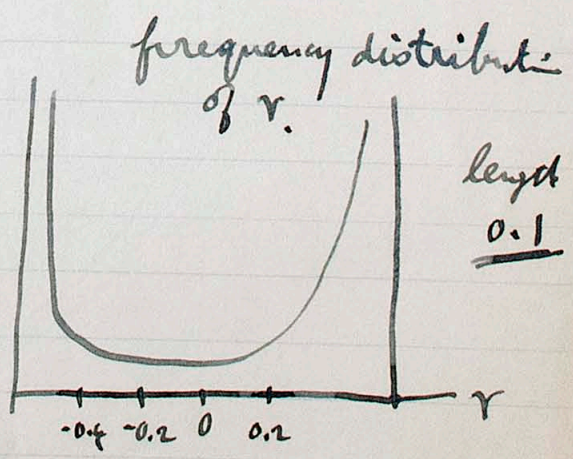 frequency distribution
of r.
length
0.1
r
-0.4 -0.2 0 0.2